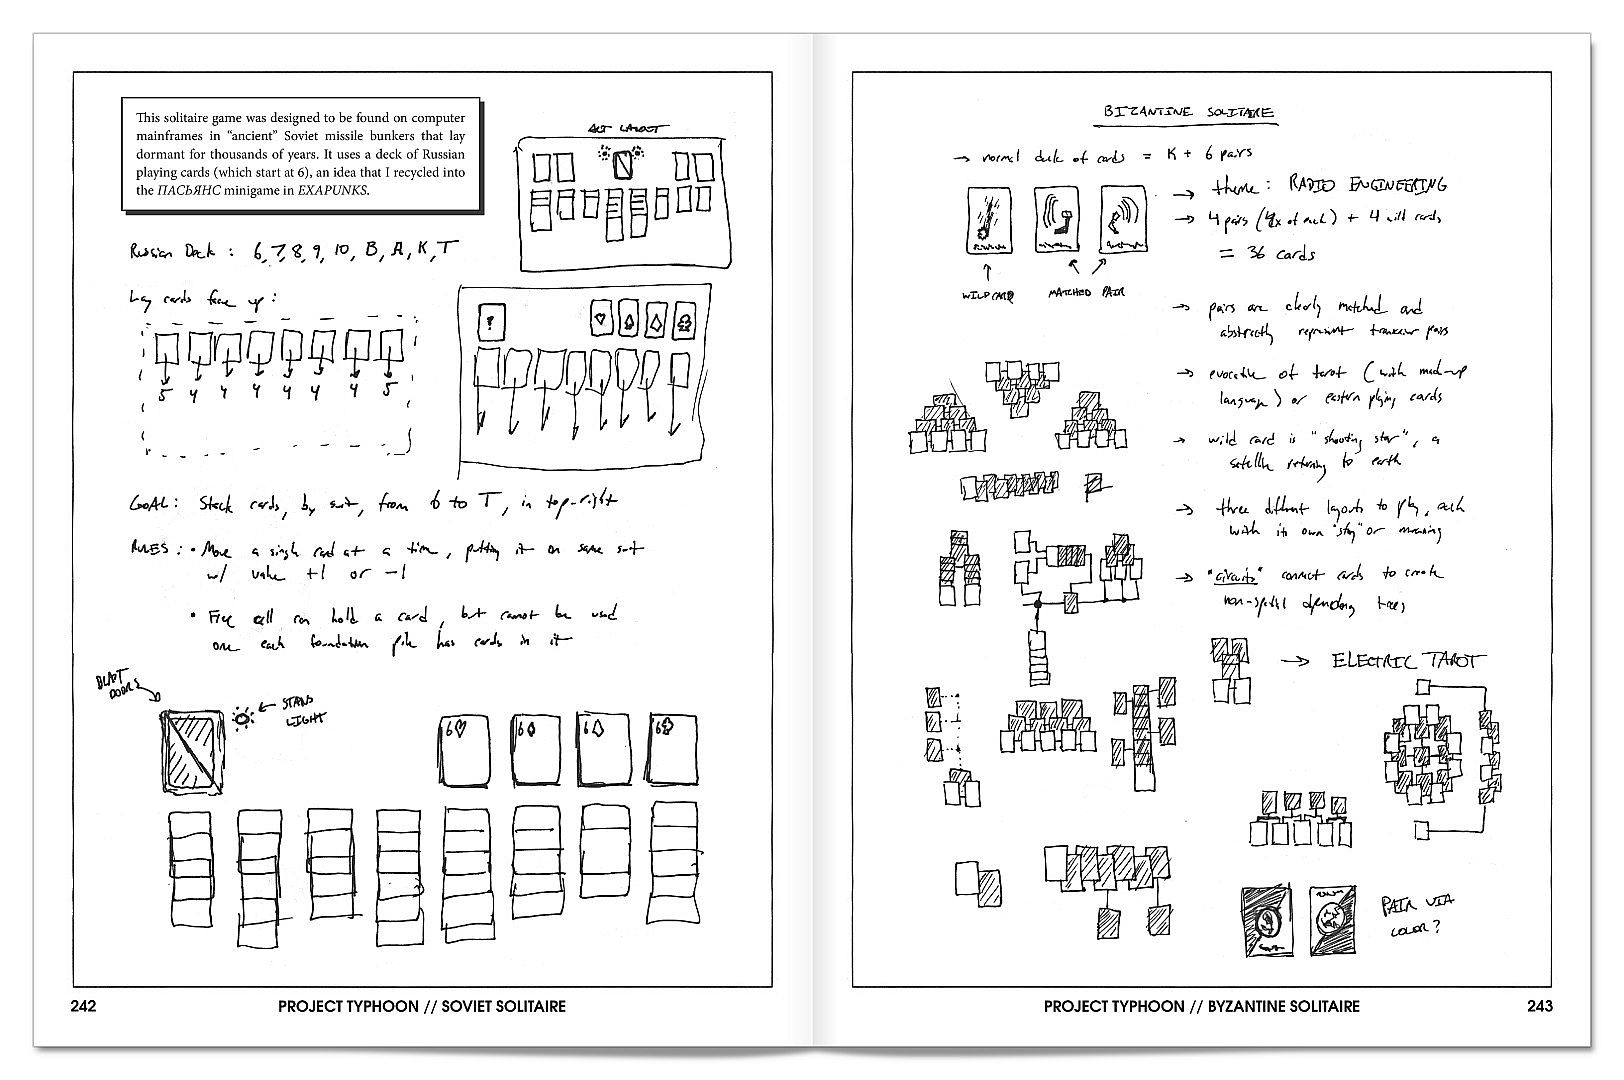 This solitaire game was designed to be found on computer
mainframes in “ancient” Soviet missile bunkers that lay
dormant for thousands of years. It uses a deck of Russian
playing cards (which start at 6), an idea that I recycled into
the ПАСЬЯНС minigame in EXAPUNKS.
ALT LAYOUT
Russian Deck : 6, 7, 8, 9, 10, B, A, K, T
Lay cards face up :
5 4 4 4 4 4 4 5
?
GOAL: Stack cards, by suit, from 6 to T, in top-right
RULES : • Move a single card at a time, putting it on same suit
w/ value +1 or -1
• Free cell can hold a card, but cannot be used
once each foundation pile has cards in it
BLAST
DOORS
STATUS
LIGHT
6♡ 6♠ 6◇ 6♣
242
PROJECT TYPHOON // SOVIET SOLITAIRE
BIZANTINE SOLITAIRE
→ normal deck of cards = K + 6 pairs
→ theme : RADIO ENGINEERING
→ 4 pairs (4x of each) + 4 wild cards
= 36 cards
WILDCARD
MATCHED PAIR
→ pairs are clearly matched and
abstractly represent transceiver pairs
→ evocative of tarot (with mad-up
language) or eastern playing cards
→ wild card is "shooting star", a
satellite returning to earth
→ three different layouts to play, each
with its own "story" or meaning
→ "circuits" connect cards to create
non-spatial depending trees
→ ELECTRIC TAROT
PAIR VIA
COLOR?
PROJECT TYPHOON // BYZANTINE SOLITAIRE
243